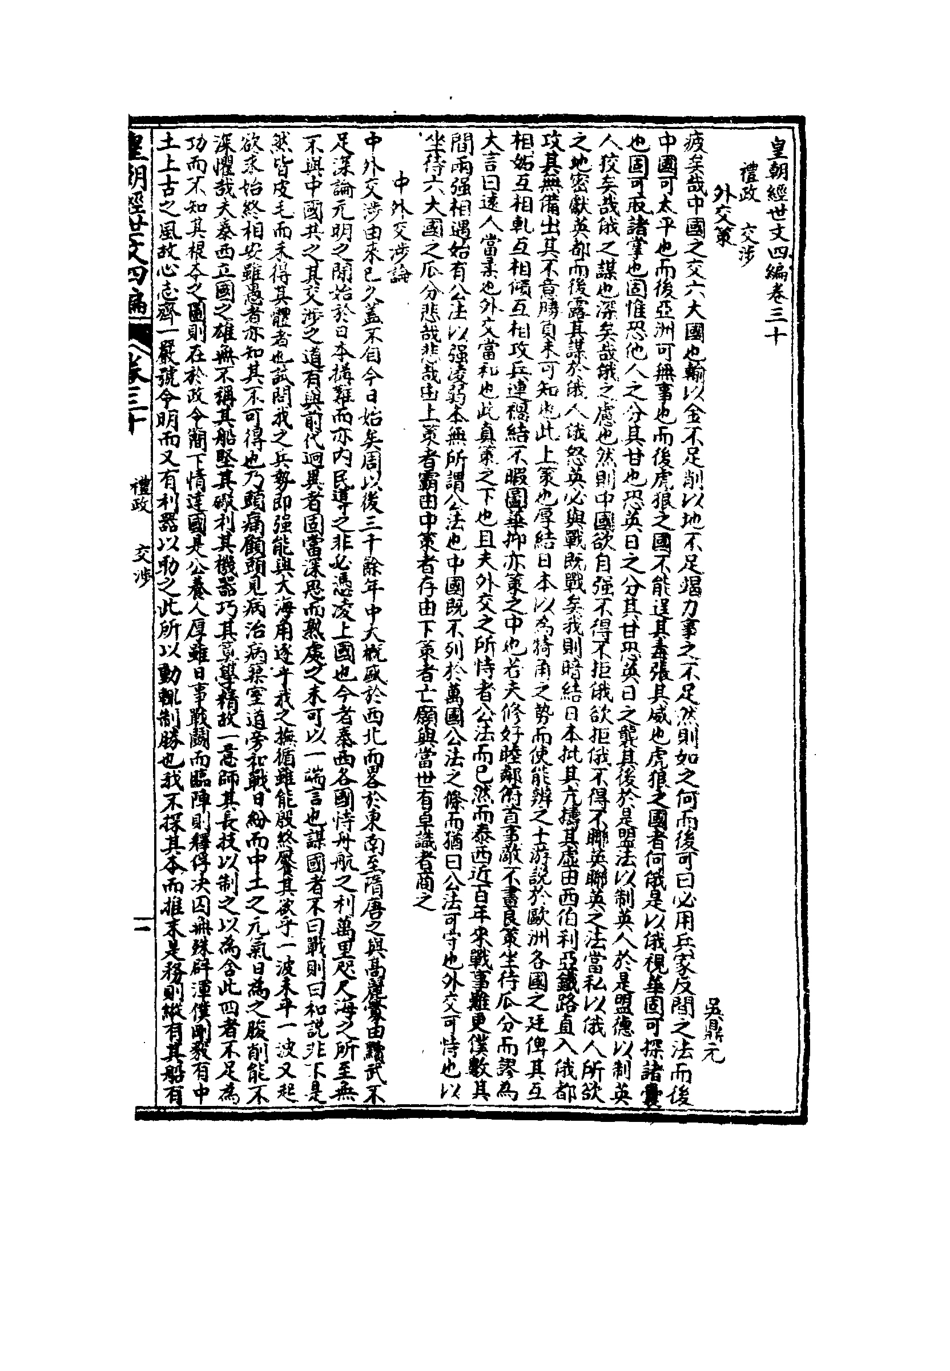 皇朝經世文四編卷三十
禮政　交涉
外交策
吳鼎元
疲矣哉中國之交六大國也輸以金不足削以地不足竭力事之不足然則如之何而後可曰必用兵家反間之法而後
中國可太平也而後亞洲可無事也而後虎狼之國不能逞其毒張其威也虎狼之國者何俄是以俄視華固可探諸囊
也固可取諸掌也固惟恐他人之分其甘也恐英日之分其甘恐英日之襲其後於是盟法以制英人於是盟德以制英
人狡矣哉俄之謀也深矣哉俄之慮也然則中國欲自強不得不拒俄欲拒俄不得不聯英聯英之法當私以俄人所欲
之地密獻英都而後露其謀於俄人俄怒英必與戰既戰矣我則暗結日本批其亢擣其虛由西伯利亞鐵路直入俄都
攻其無備出其不意勝負未可知也此上策也厚結日本以為犄角之勢而使能辨之士游說於歐洲各國之廷俾其互
相妬互相軋互相傾互相攻兵連禍結不暇圖華抑亦策之中也若夫修好睦鄰俯首事敵不畫良策坐待瓜分而謬為
大言曰遠人當柔也外交當和也此真策之下也且夫外交之所恃者公法而已然而泰西近百年來戰事難更僕數其
間兩强相遇始有公法以强凌弱本無所謂公法也中國既不列於萬國公法之條而猶曰公法可守也外交可恃也以
坐待六大國之瓜分悲哉悲哉由上策者霸由中策者存由下策者亡願與當世有卓識者商之
中外交涉論
中外交涉由來已久蓋不自今日始矣周以後三千餘年中大概盛於西北而畧於東南至隋唐之與高麗釁由黷武不
足深論元明之間始於日本搆難而亦内民導之非必憑凌上國也今者泰西各國恃舟航之利萬里咫尺海之所至無
不與中國共之其交涉之道有與前代迥異者固當深思而熟處之未可以一端言也謀國者不曰戰則曰和説非不是
然皆皮毛而未得其體者也試問我之兵勢即強能與大海角逐乎我之撫循雖能殷終饜其欲乎一波未平一波又起
欲求始終相安雖愚者亦知其不可得也乃頭痛顧頭見病治病築室道旁和戰日紛而中土之元氣日為之朘削能不
深懼哉夫泰西立國之雄無不稱其船堅其礮利其機器巧其算學精故一意師其長技以制之以為舍此四者不足為
功而不知其根本之圖則在於政令簡下情達國是公養人厚雖日事戰鬪而臨陣則釋俘決囚無殊辟渾僕剛毅有中
土上古之風故心志齊一嚴號令明而又有利器以助之此所以動輒制勝也我不探其本而推末是務則縱有其船有
皇朝經世文四編　卷三十　禮政　交涉　一